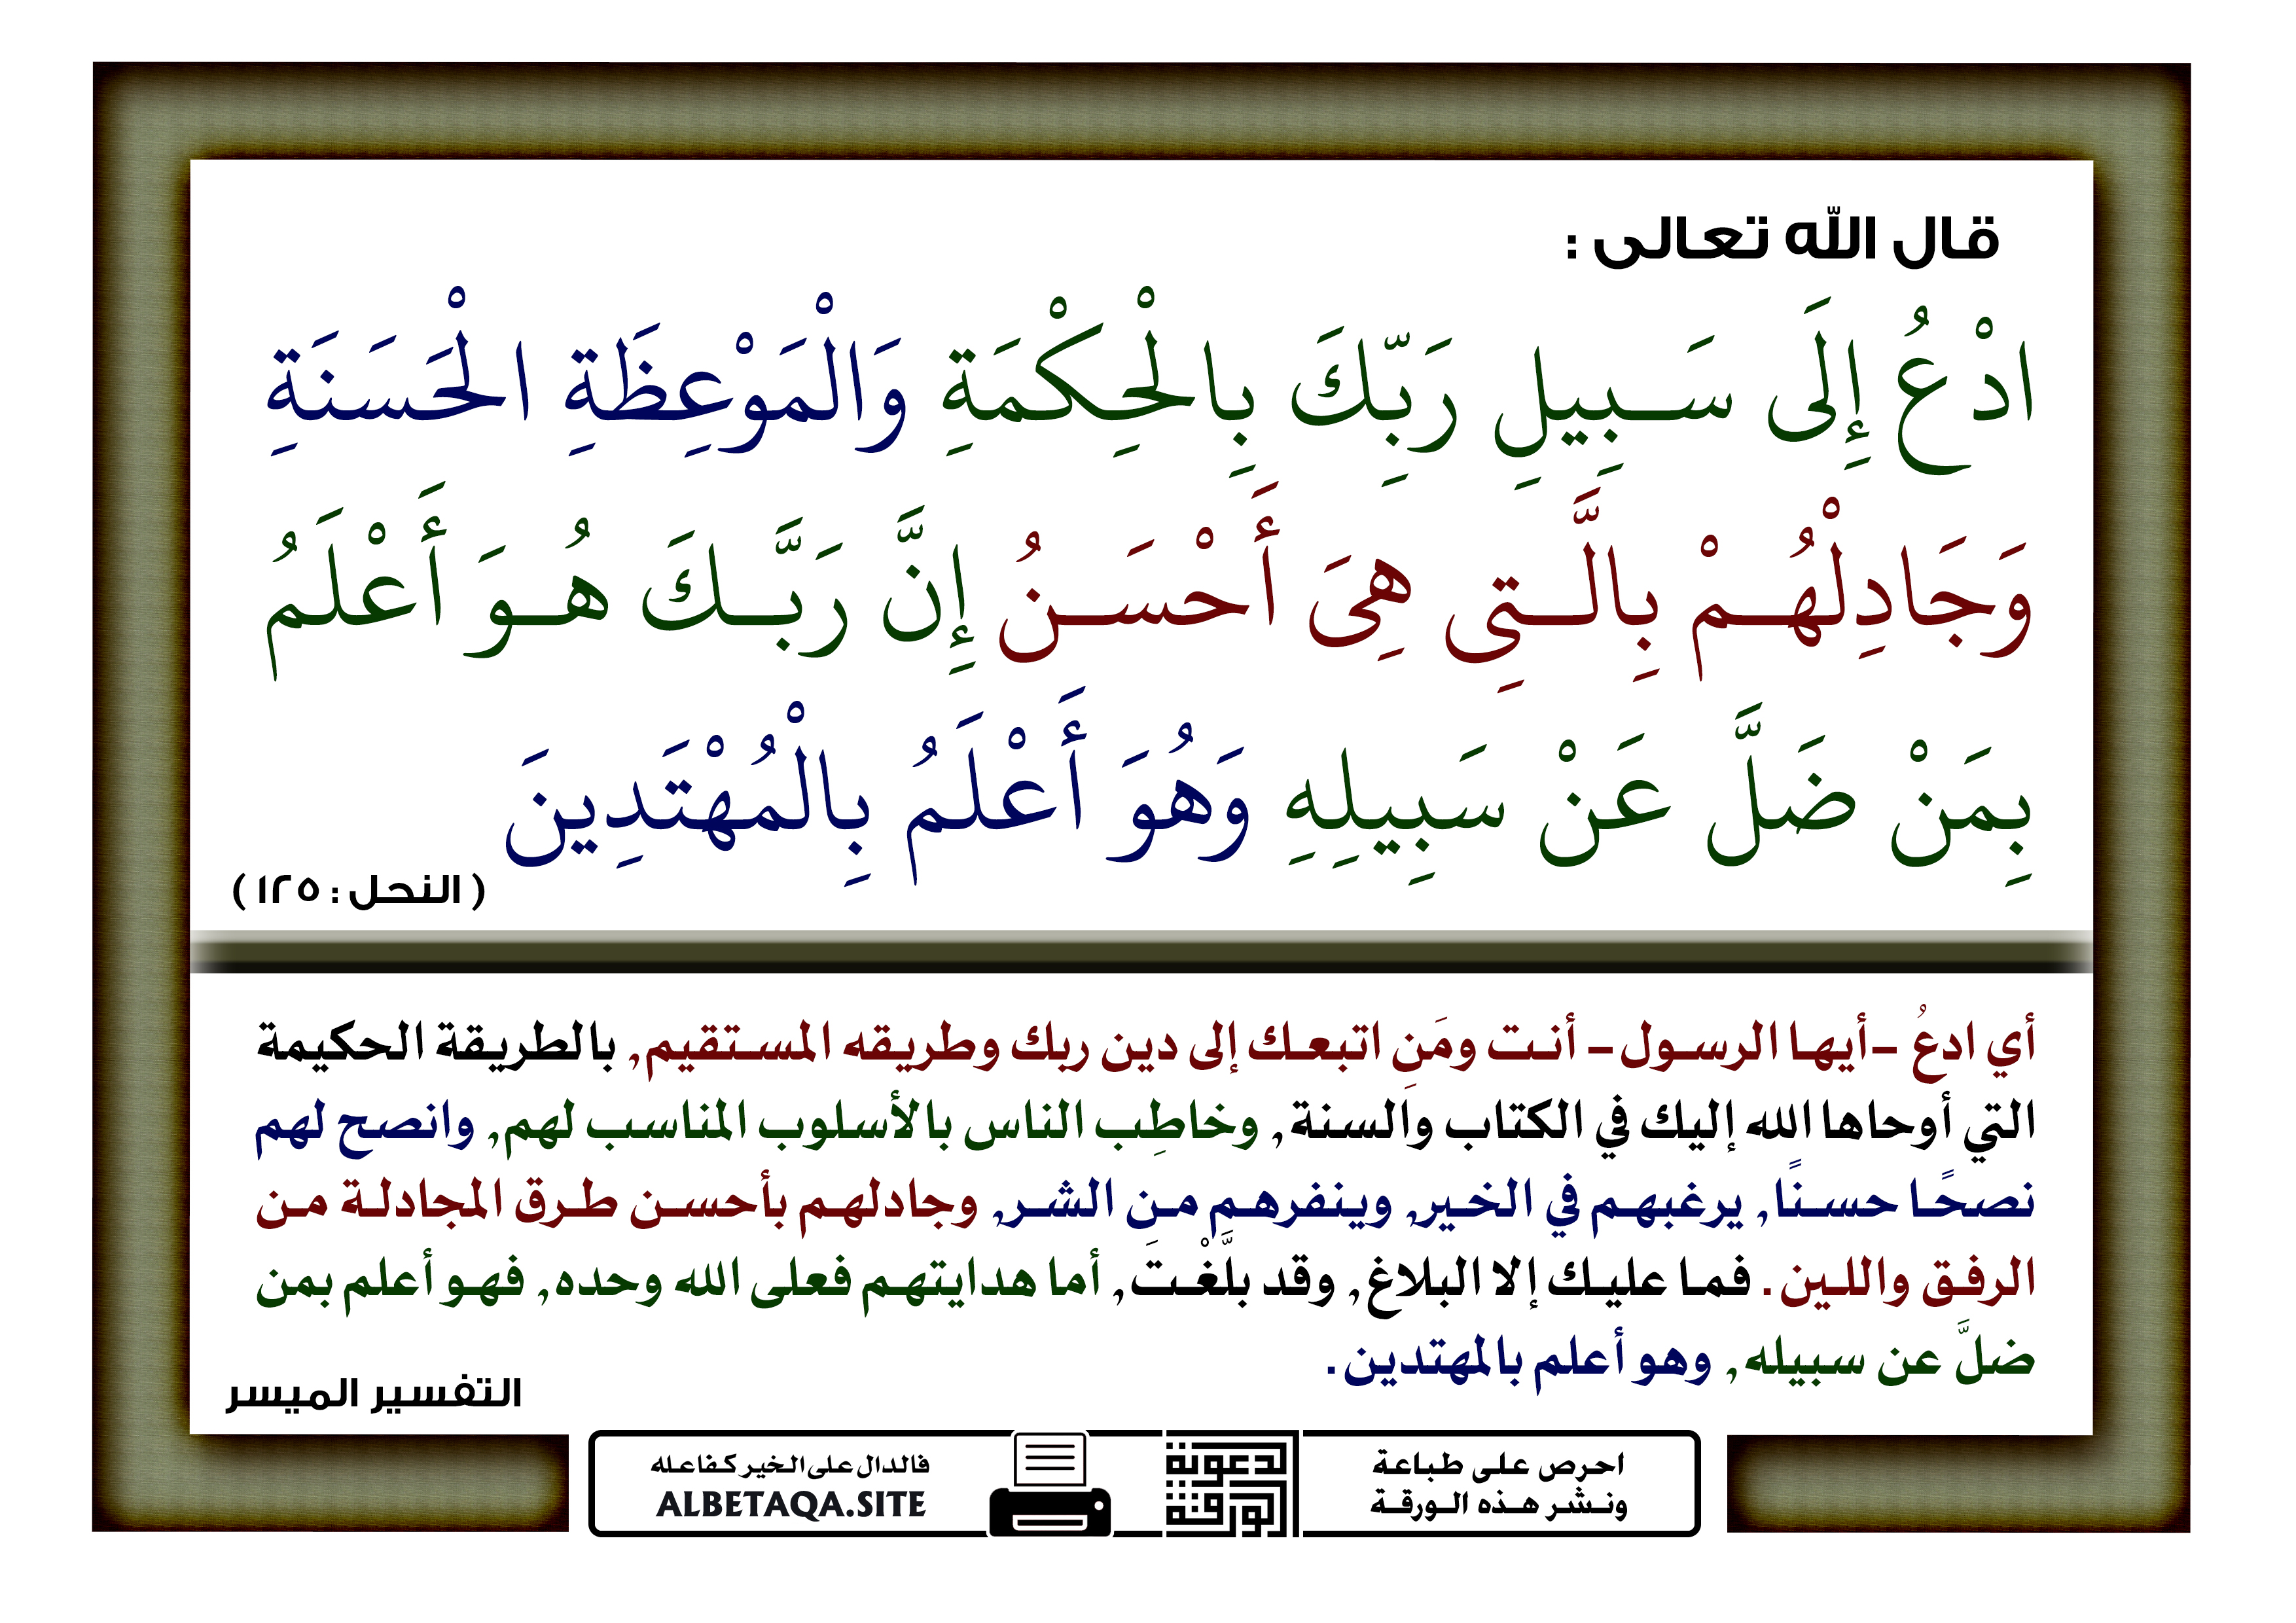 قال الله تعالى :
ادْعُ إِلَى سَبِيلِ رَبِّكَ بِالْحِكْمَةِ وَالْمَوْعِظَةِ الْحَسَنَةِ
وَجَادِلْهُمْ بِالَّتِي هِيَ أَحْسَنُ إِنَّ رَبَّكَ هُوَ أَعْلَمُ
بِمَنْ ضَلَّ عَنْ سَبِيلِهِ وَهُوَ أَعْلَمُ بِالْمُهْتَدِينَ
( النحل : ١٢٥ )
أي ادعُ -أيها الرسول- أنت ومَنِ اتبعك إلى دين ربك وطريقه المستقيم, بالطريقة الحكيمة
التي أوحاها الله إليك في الكتاب والسنة, وخاطِب الناس بالأسلوب المناسب لهم, وانصح لهم
نصحًا حسنًا, يرغبهم في الخير, وينفرهم من الشر, وجادلهم بأحسن طرق المجادلة من
الرفق واللين. فما عليك إلا البلاغ, وقد بلَّغْتَ, أما هدايتهم فعلى الله وحده, فهو أعلم بمن
ضلَّ عن سبيله, وهو أعلم بالمهتدين.
التفسير الميسر
احرص على طباعة
ونشر هذه الورقة
الورقة
الدعوية
فالدال على الخير كفاعله
ALBETAQA.SITE